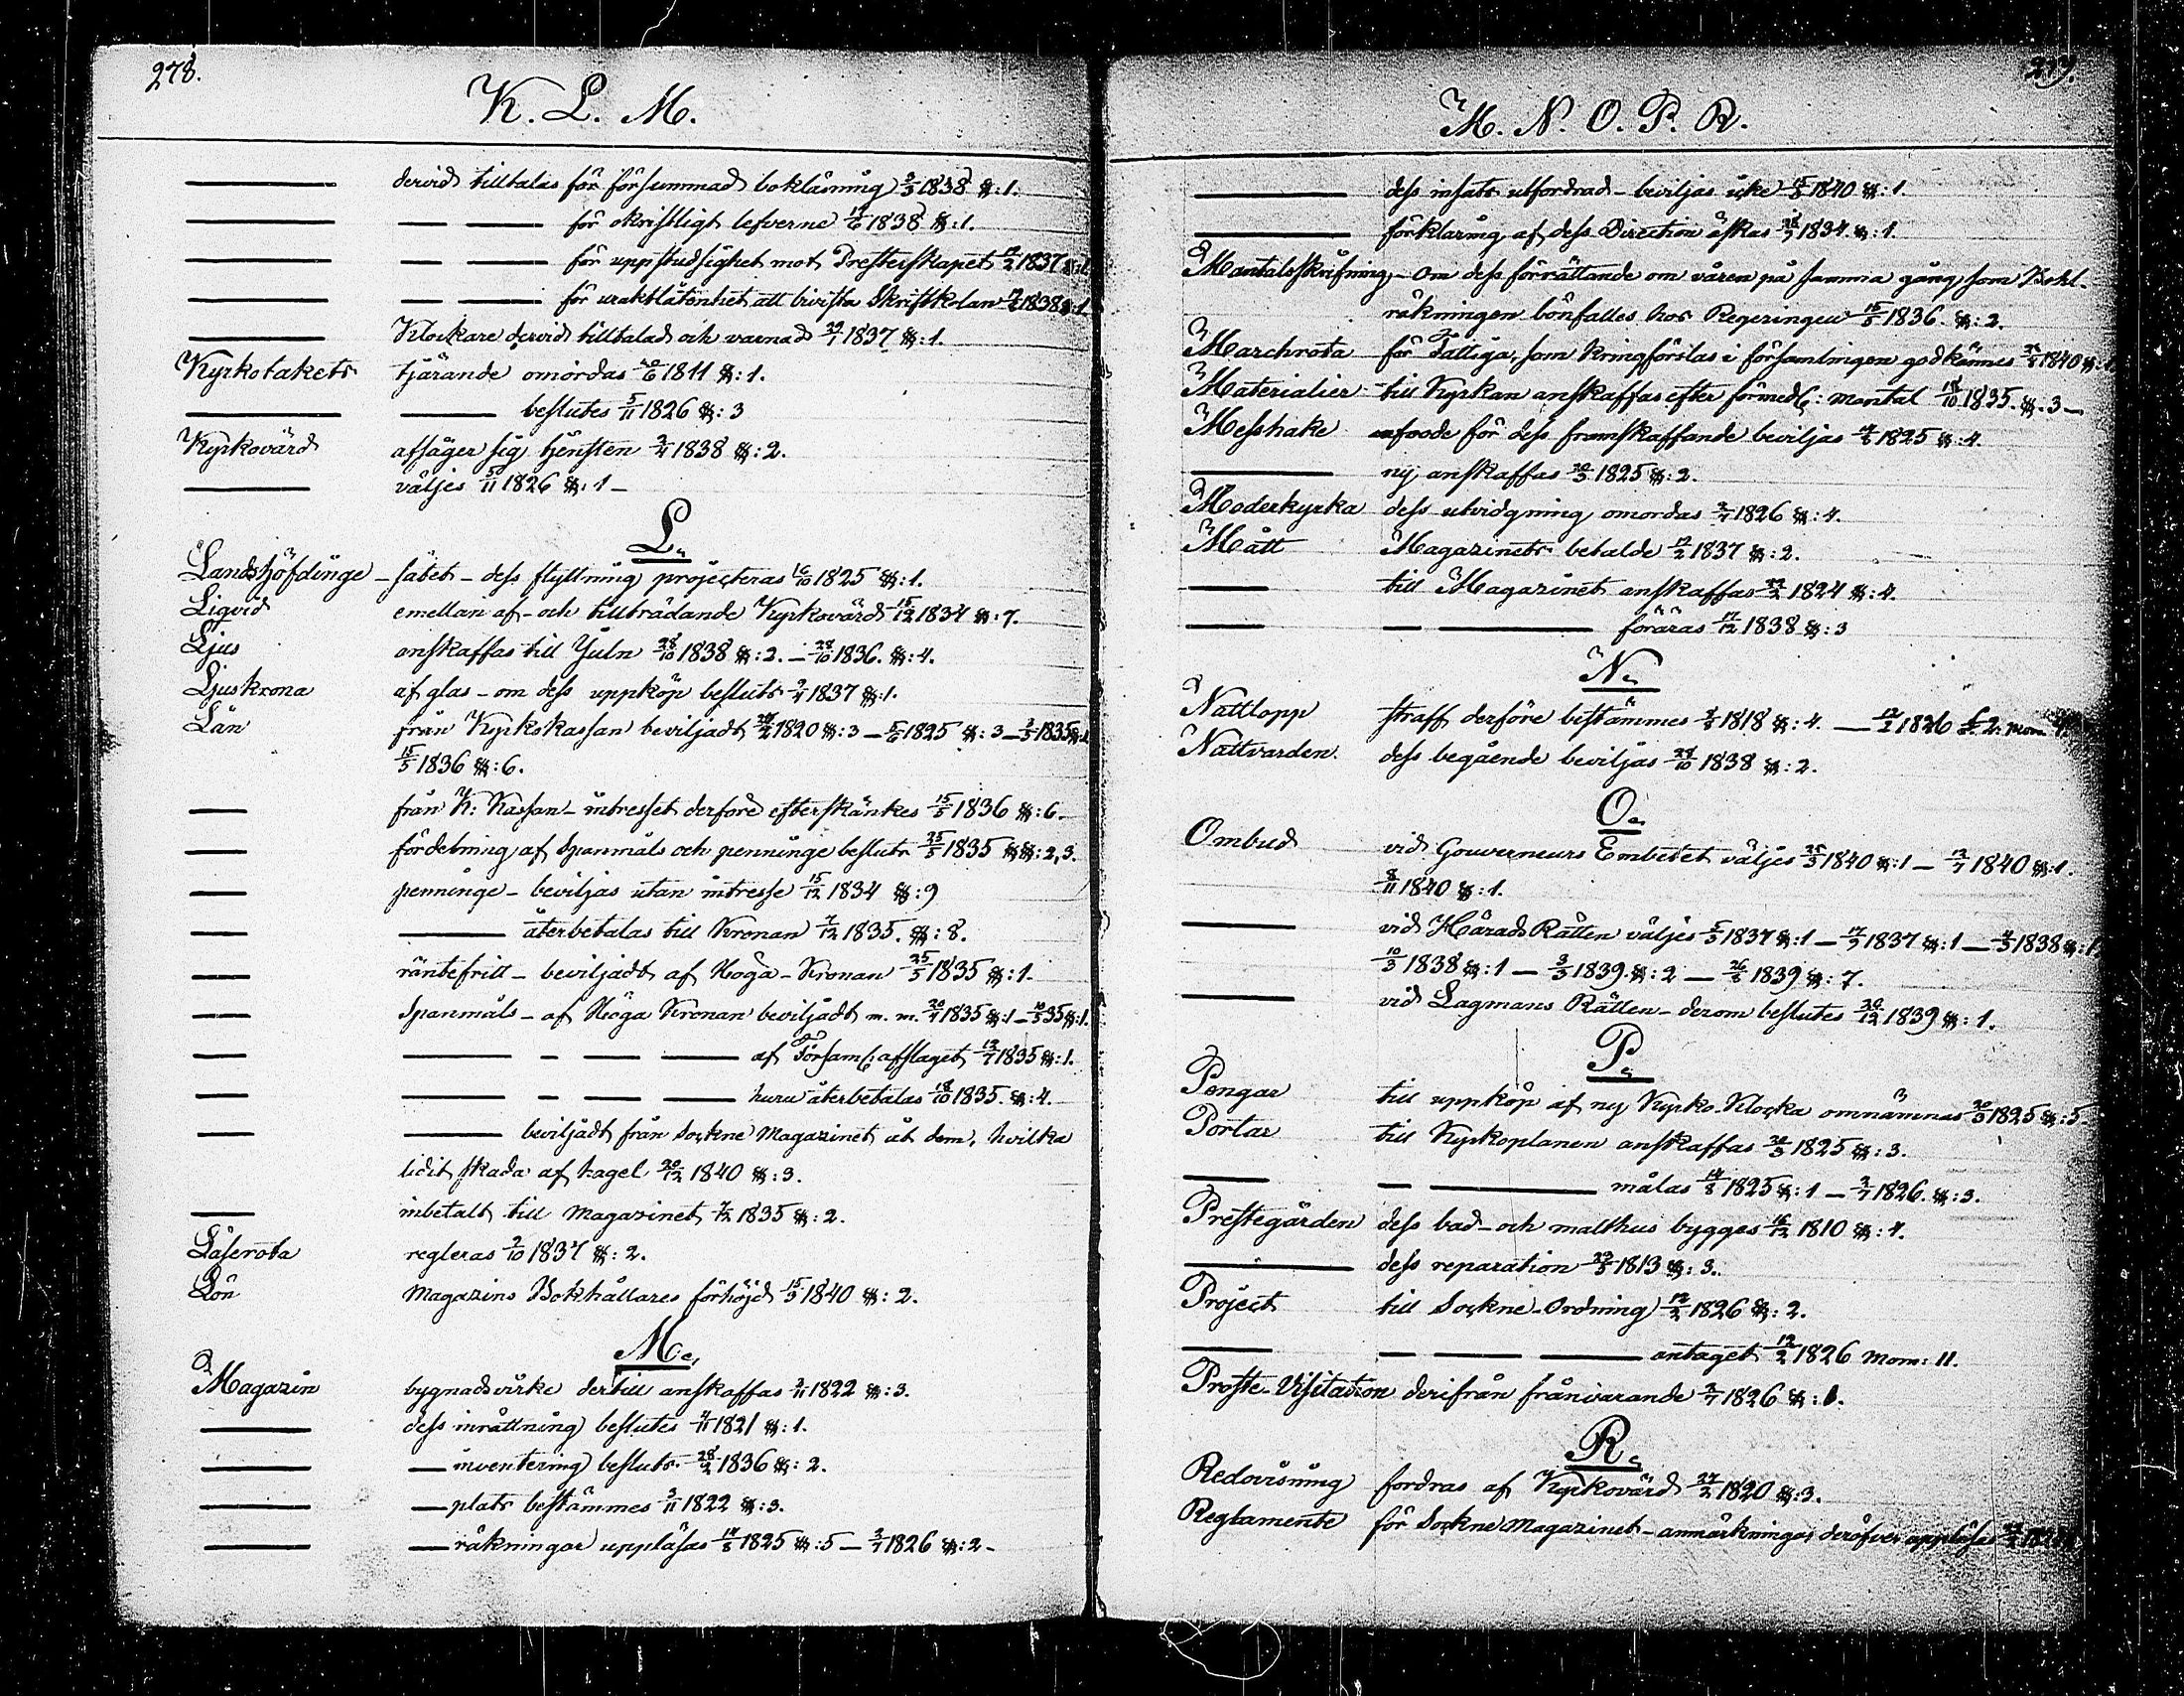 278.
K. L. M.
——— dervid tilltalas för försummad bokläsning 3/5 1838 §:1.
——— — — för okristligt lefverne 17/6 1838 §:1.
——— — — för uppstudsighet mot Presterskapet 12/2 1837 §:1
——— — — för uraktlåtenhet att bivista Skriftskolan 1838 §:1
——— Klockare dervid tilltalad och varnad 29/1 1837 §:1.
Kyrkotakets tjärande omordas 10/6 1811 §:1.
——— ——— beslutes 5/11 1826 §:3
Kyrkovärd afsäger sig tjensten 2/4 1838 §:2.
——— väljes 5/11 1826 §:1 –
L.
Landshöfdinge – sätet – dess flyttning projecteras 16/10 1825 §:1.
Liqvid emellan af- och tillträdande Kyrkovärd 15/12 1834 §:7.
Ljus anskaffas till Julen 28/10 1838 §:2. – 28/10 1836. §:4.
Ljuskrona af glas – om dess uppköp besluts 2/4 1837 §:1.
Lån från Kyrkokassan beviljadt 27/2 1820 §:3 – 5/6 1825 §:3 – 3/5 1835 §:1
15/5 1836 §:6.
— från K: Kassan – intresset derföre efterskänkes 15/5 1836 §:6.
— fördelning af Spanmåls och penninge besluts 25/5 1835 §§:2,3.
— penninge – beviljas utan intresse 15/12 1834 §:9
— ——— återbetalas till Kronan 7/12 1835. §:8.
— räntefritt – beviljadt af Höga Kronan 25/5 1835 §:1.
— Spanmåls – af Höga Kronan beviljadt m. m. 20/4 1835 §:1 – 10/5 35 §:1.
— ——— – — — af Församl: afslaget 12/7 1835 §:1.
— ——— – — — huru återbetalas 18/10 1835. §:4.
— ——— beviljadt från Sockne Magazinet åt dem, hvilka
lidit skada af hagel 20/12 1840 §:3.
— inbetalt till Magazinet 7/12 1835 §:2.
Läserota regleras 2/10 1837 §:2.
Lön Magazins Bokhållares förhöjd 15/3 1840 §:2.
M.
Magazin bygnadsvirke dertill anskaffas 3/11 1822 §:3.
——— dess inrättning beslutes 4/11 1821 §:1.
——— — inventering besluts 28/2 1836 §:2.
——— — plats bestämmes 3/11 1822 §:3.
——— — räkningar uppläsas 14/8 1825 §:5 – 2/7 1826 §:2 –
279.
M. N. O. P. R.
——— dess insats utfordrad – beviljas icke 1840 §:1.
——— förklaring af dess Direction äskas 1834 §:1.
Mantalsskrifning – Om dess förrättande om våren på samma gång som Bohl-
räkningen bönfalles hos Regeringen 15/5 1836. §:2.
Marchrota för Fattiga, som kringförslas i församlingen godkännes 1840 §:1
Materialier till Kyrkan anskaffas efter förmedl: mantal 18/10 1835. §.3 –
Messhake dess framskaffande beviljas 1825 §:4.
——— ny anskaffas 20/3 1825 §:2.
Moderkyrka dess utvidgning omordas 2/7 1826 §:4.
Mått Magazinets betalde 12/2 1837 §:2.
— till Magazinet anskaffas 22/2 1824 §:4.
— — ——— föräras 17/12 1838 §:3
N.
Nattlopp straff derföre bestämmes 1818 §:4. — 12/2 1826 §. 2. mom.
Nattvarden. dess begående beviljas 28/10 1838 §:2.
O.
Ombud vid Gouverneurs Embetet väljes 25/3 1840 §:1 – 12/7 1840 §:1.
8/11 1840 §:1.
——— vid Härads Rätten väljes 5/3 1837 §:1 – 17/9 1837 §:1 – 4/3 1838 §:1.
10/3 1838 §:1 – 3/3 1839. §:2 – 26/8 1839 §:7.
——— vid Lagmans Rätten – derom beslutes 26/12 1839 §:1.
P.
Pengar till uppköp af ny Kyrko-Klocka omnämnas 20/3 1825 §:5.
Portar till Kyrkoplanen anskaffas 20/3 1825 §:3.
— — ——— målas 14/8 1825 §:1 – 2/7 1826. §:3.
Prestegården dess bad- och malthus bygges 16/12 1810 §:4.
——— dess reparation 23/5 1813 §:3.
Project till Sockne-Ordning 12/2 1826 §:2.
——— — — ——— antaget 12/2 1826 Mom: 11.
Proste-Visitation derifrån frånvarande 2/7 1826 §:1.
R.
Redovisning fordras af Kyrkovärd 27/2 1820 §:3.
Reglamente för Sockne Magazinet – anmärkningar deröfver uppläses